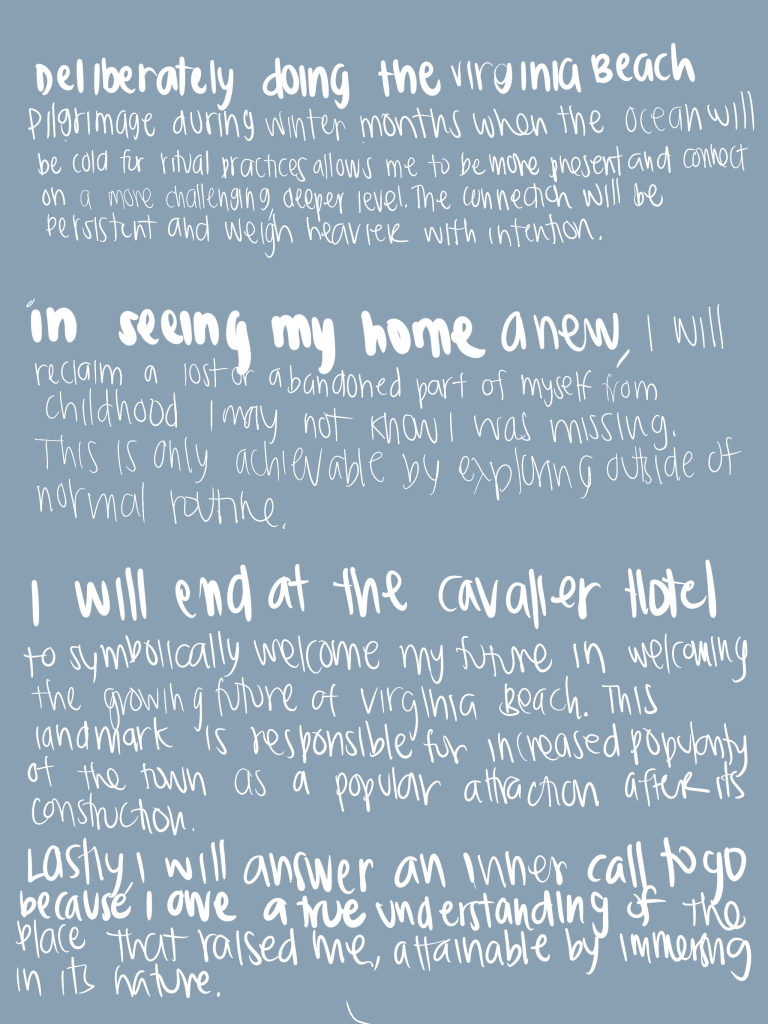 Deliberately doing the Virginia Beach
Pilgrimage during winter months when the ocean will
be cold for ritual practices allows me to be more present and connect
on a more challenging, deeper level. The connection will be
persistent and weigh heavier with intention.
in seeing my home anew, I will
reclaim a lost or abandoned part of myself from
childhood I may not know I was missing.
This is only achievable by exploring outside of
normal routine.
I will end at the Cavalier Hotel
to symbolically welcome my future in welcoming
the growing future of Virginia Beach. This
landmark is responsible for increased popularity
of the town as a popular attraction after its
construction.
Lastly, I will answer an inner call to go
because I owe a true understanding of the
place that raised me, attainable by immersing
in its nature.